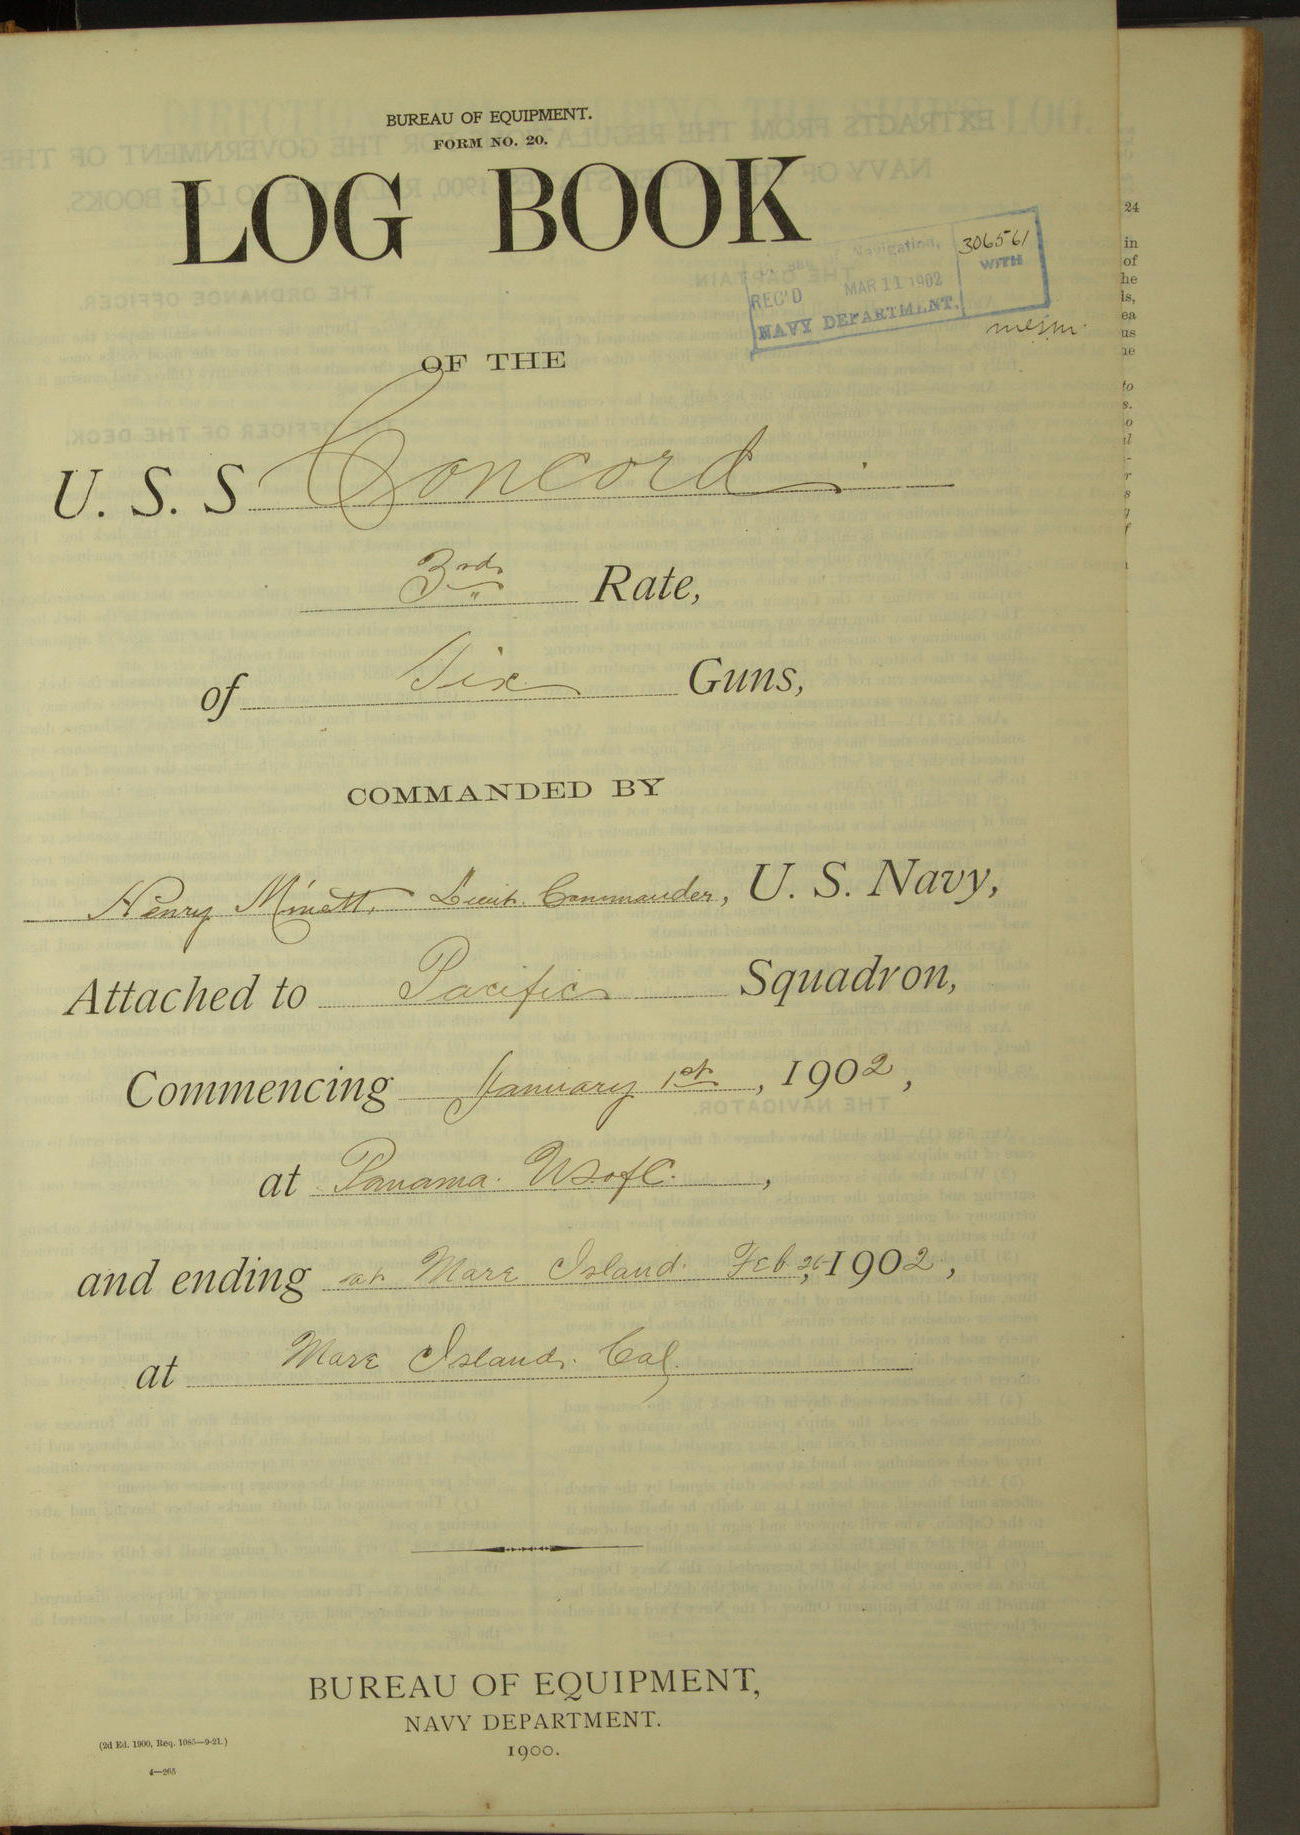 BUREAU OF EQUIPMENT.
FORM NO. 20.
LOG BOOK
Navigation,
306561
REC'D MAR 11 1902
WITH
NAVY DEPARTMENT.
OF THE
U. S. S Concord.
3rd Rate,
of Six Guns,
COMMANDED BY
Henry Minett, Lieut. Commander, U. S. Navy,
Attached to Pacific Squadron,
Commencing January 1st, 1902,
at Panama. U S of C.,
and ending at Mare Island. Feb 26, 1902,
at Mare Island. Cal.
BUREAU OF EQUIPMENT,
NAVY DEPARTMENT.
1900.
(2d Ed. 1900, Req. 1085—9-21.)
4—265